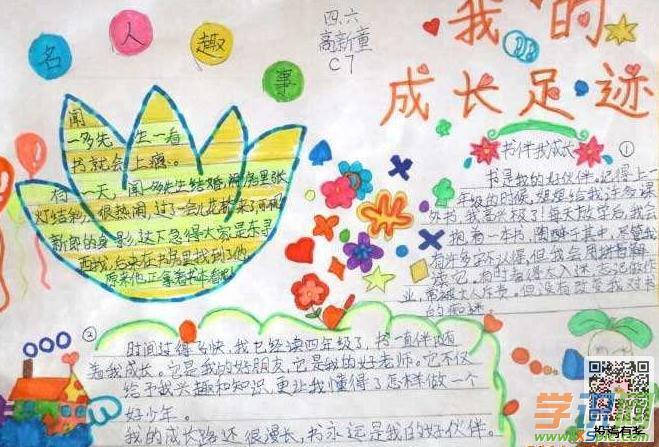 我的
成长足迹
四、六
高新童
C7
名人趣事
闻
一多先生一看
书就会上瘾。
有一天,闻一多先生结婚,
灯结彩,很热闹,过了一会儿花轿来了,可
新郎的身影,这下急得大家是东寻
西找,后来在书房里找到了他,
原来他正拿着书本看呢
书伴我成长
①
书是我的好伙伴。记得上一
年级的时候,妈妈给我
外书,我高兴极了!每天放学后,我会
抱着一本书,
有许多字不认得,但我会用拼音
读记。有时看得太入迷,忘记做作
业,常被大人斥书。但没有改变我对书
的痴迷。
②
时间过得多快,我已经读四年级了,书一直伴随
着我成长。它是我的好朋友,它是我的好老师。它不仅
给予我兴趣和知识,更让我懂得了怎样做一个
好少年。
我的成长路还很漫长,书永远是我的好伙伴。
投稿有奖